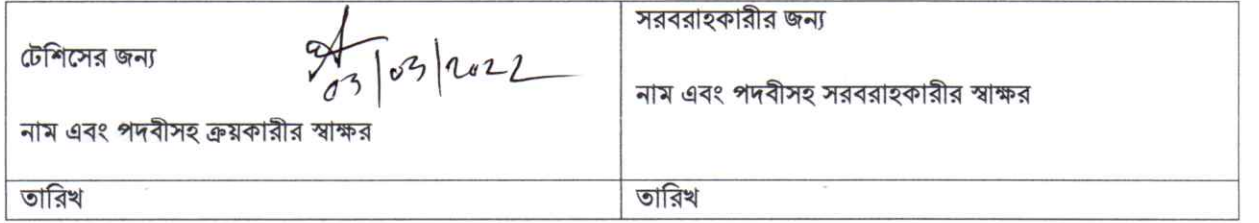 টেশিসের জন্য
03/03/2022
নাম এবং পদবীসহ ক্রয়কারীর স্বাক্ষর
তারিখ
সরবরাহকারীর জন্য
নাম এবং পদবীসহ সরবরাহকারীর স্বাক্ষর
তারিখ